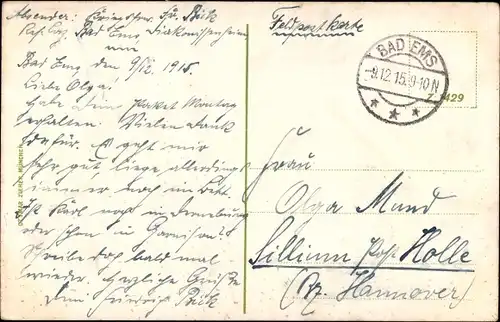 Absender: Kriegsfreiw. Fr. Bück
Res. Laz. Bad Ems, Diakonissenheim
Feldpostkarte
Bad Ems, den 9/12. 1915.
Liebe Olga!
Habe Dein Paket Montag
erhalten. Vielen Dank
dafür. Es geht mir
sehr gut, liege allerdings
immer noch im Bett
Ist Karl noch in
oder schon in Garnison?
Schreibe doch bald mal
wieder. Herzliche Grüße
Dein Friedrich Bück
BAD EMS
9.12.15. 9-10 N
Z 1429
Frau
Olga Mund
Sillium Post Holle
(Pz. Hannover)
OTTMAR ZIEHER, MÜNCHEN